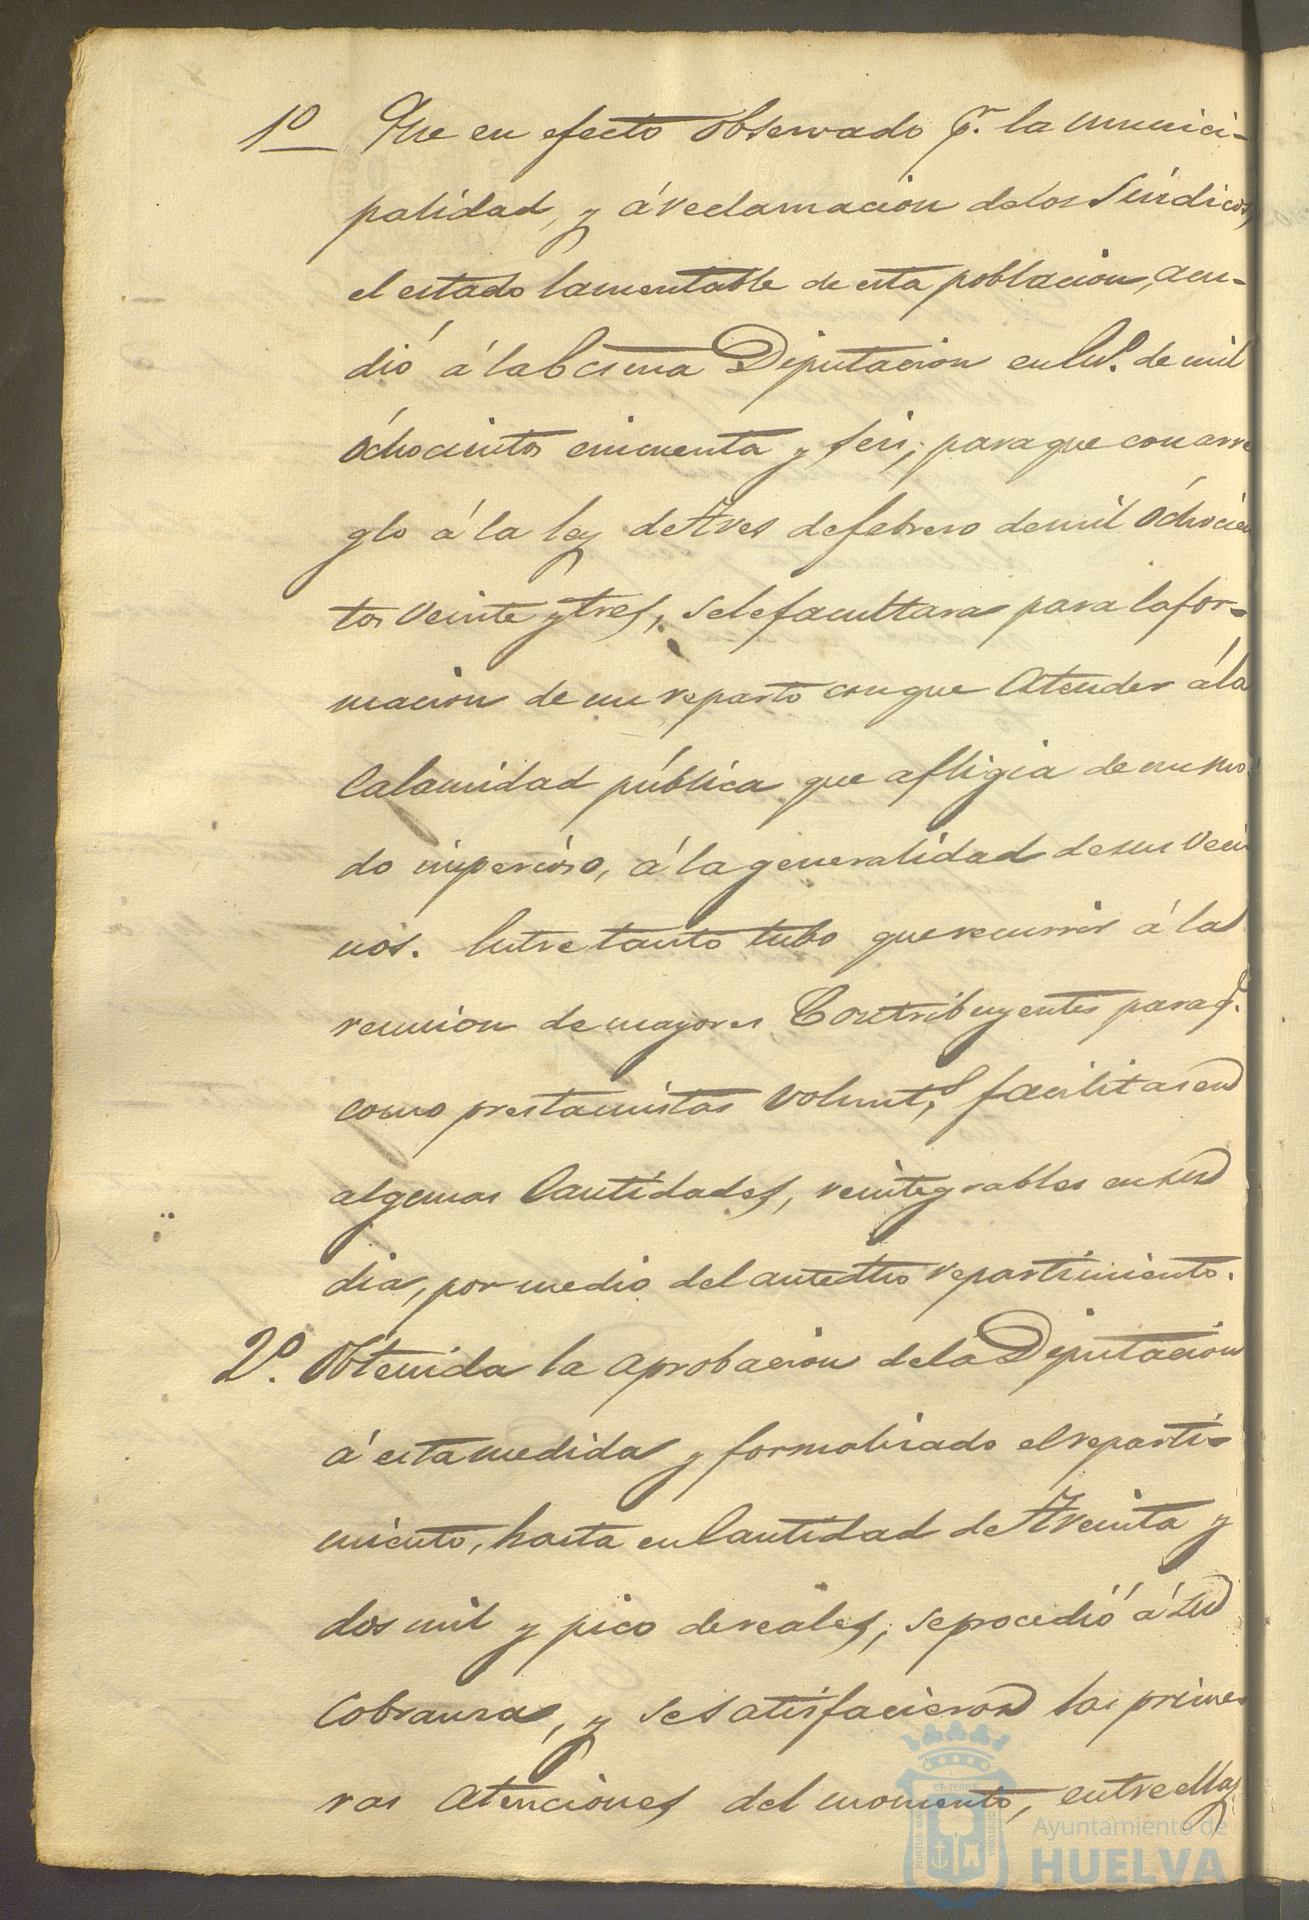 1º Que en efecto observado pr. la munici-
palidad, y á reclamacion delos Síndicos,
el estado lamentable de esta poblacion, acu-
dió á la Ecsma Diputacion en de mil
óchocientos cincuenta y seis; paraque con arre
glo á la ley de tres de febrero de mil óchocien
tos veinte y tres, sele facultara para la for-
macion de un reparto conque atender á la
Calamidad pública que afligia de un mo
do imperioso, á la generalidad desus veci
nos. Entretanto tubo que recurrir á la
reunion de mayores Contribuyentes para q.
como prestamistas volunts, facilitasen
algunas Cantidades, reintegrables en su
dia, por medio del antedho repartimiento.
2º. Obtenida la aprobacion dela Diputacion
á esta medida y formalizado el reparti-
miento, hasta en Cantidad de treinta y
dos mil y pico de reales, se procedió á su
Cobranza, y se satisfacieron las prime
ras atenciones del momento, entre ellas
PORTUS MARIS ET TERRÆ CUSTODIA
Ayuntamiento de
HUELVA